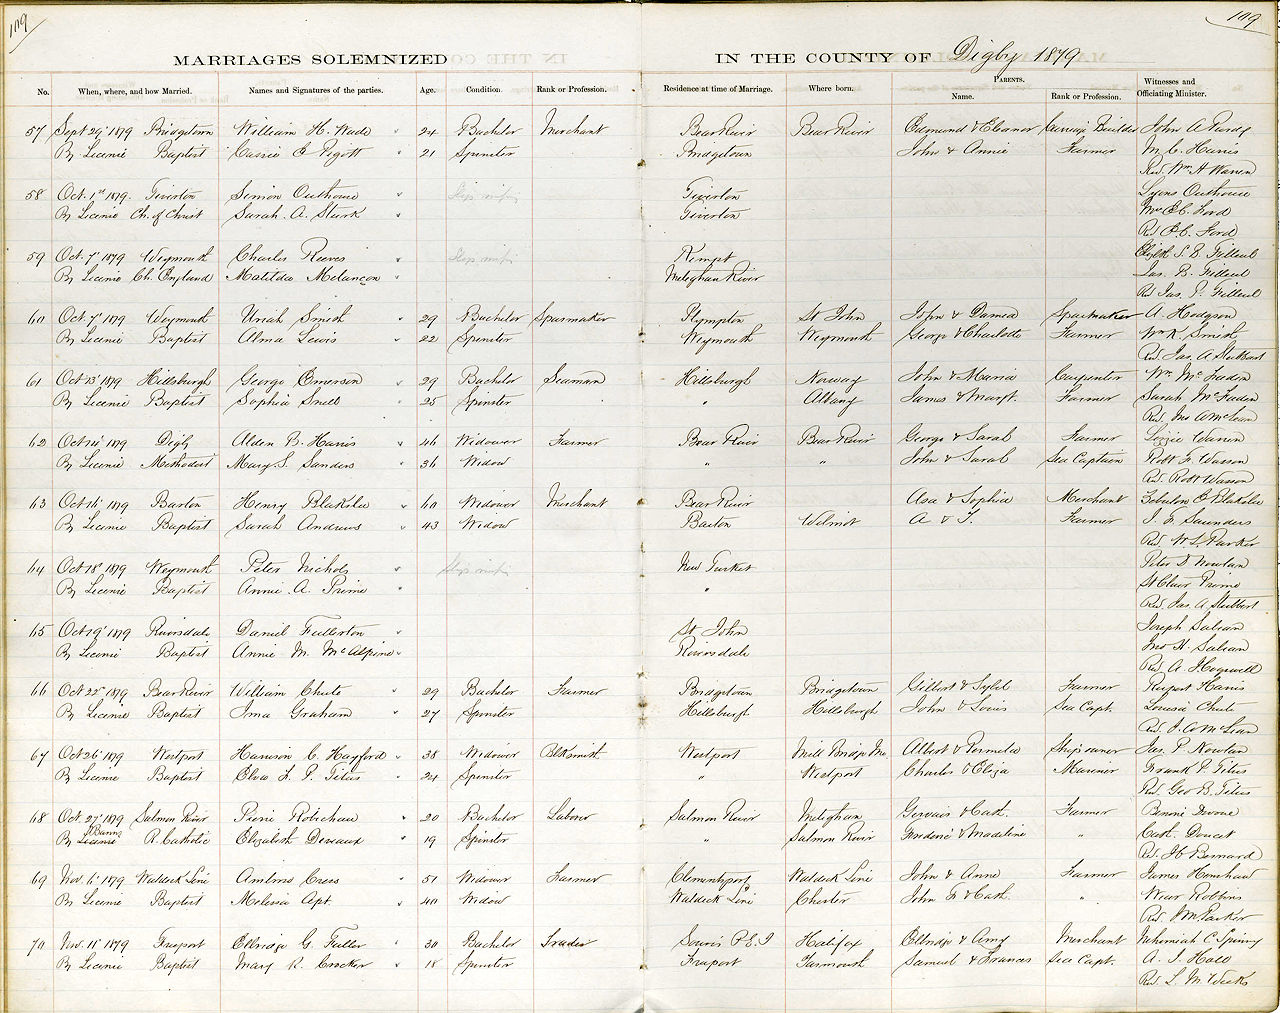 109 109
MARRIAGES SOLEMNIZED IN THE COUNTY OF Digby 1879
No. When, where, and how Married. Names and Signatures of the parties. Age. Condition. Rank or Profession. Residence at time of Marriage. Where born. Parents. Name. Rank or Profession. Witnesses and Officiating Minister.
57 Sept 29' 1879 Bridgetown William H. Wade " 24 Bachelor Merchant Bear River Bear River Edmund & Eleanor Carriage Builder John A Purdy
By Licence Baptist Cassie E Pigott " 21 Spinster Bridgetown John & Annie Farmer M. C. Harris
Rev. Wm A Warren
58 Oct. 1st 1879. Tiverton Simion Outhouse " Slip missing Tiverton Lyons Outhouse
By Licence Ch. of Christ Sarah. A. Stark " Tiverton Mrs E C. Ford
Rev E. C. Ford
59 Oct. 7' 1879 Weymouth Charles Reeves " Slip missing Kempt S. E. Filleul
By Licence Ch. England Matilda Melancon " Meteghan River Jas. B. Filleul
Rev Jas. P. Filleul
60 Oct 7' 1879 Weymouth Uriah Smith " 29 Bachelor Sparmaker Plympton St John John & Damea Sparmaker A. Hodgson
By Licence Baptist Alma Lewis " 22 Spinster Weymouth Weymouth George & Charlotte Farmer Wm K. Smith
Rev. Jas. A Stubbert
61 Oct 13' 1879 Hillsburgh George Emerson " 29 Bachelor Seaman Hillsburgh Norway John & Maria Carpenter Wm. McFaden
By Licence Baptist Sophia Snell " 25 Spinster " Albany James & Margt. Farmer Sarah McFaden
Rev. Jno A McLean
62 Oct 14' 1879 Digby Alden B. Harris " 46 Widower Farmer Bear River Bear River George & Sarah Farmer Lizzie Warren
By Licence Methodist Mary S. Sanders " 36 Widow " " John & Sarah Sea Captain Robt F. Wasson
Rev. Robt Wasson
63 Oct 16' 1879 Barton Henry Blakslee " 60 Widower Merchant Bear River Asa & Sophia Merchant Zebulon E Blakslee
By Licence Baptist Sarah Andrews " 43 Widow Barton Wilmot A & T. Farmer J. F. Saunders
Rev. W L. Parker
64 Oct 18' 1879 Weymouth Peter Nichols " Slip missing New Tusket Peter D Nowlan
By Licence Baptist Annie. A. Prime " " St Clair Prime
Rev. Jas. A Stubbert
65 Oct 19' 1879 Riversdale Daniel Fullerton " St John Joseph Sabean
By Licence Baptist Annie M. McAlpine " Riversdale Jno H. Sabean
Rev. A Hogwell
66 Oct 22' 1879 Bear River William Chute " 29 Bachelor Farmer Bridgetown Bridgetown Gilbert & Sybil Farmer Rupert Harris
By Licence Baptist Ima Graham " 27 Spinster Hillsburgh Hillsburgh John & Louis Sea Capt. Louisa Chute
Rev. J. A McLean
67 Oct 26' 1879 Westport Harrison C. Hayford " 38 Widower Blksmith Westport Mill Bridge Me. Albert & Permelia Ship owner Jas. P. Nowlan
By Licence Baptist Elva L. P. Titus " 24 Spinster " Westport Charles & Eliza Mariner Frank P. Titus
Rev. Geo B. Titus
68 Oct. 27' 1879 Salmon River Pierre Robichau " 20 Bachelor Laborer Salmon River Meteghan Gervais & Cath. Farmer
By Banns Licence R. Catholic Elizabeth Deveaux " 19 Spinster " Salmon River Frederic & Madeline " Cath. Doucet
Rev. H Bernard
69 Nov. 6' 1879 Waldeck Line Ambrose Cress " 51 Widower Farmer Clementsport Waldeck Line John & Anne Farmer James Henshaw
By Licence Baptist Melessa Apt " 40 Widow Waldeck Line Chester John F & Cath. " Wear Robbins
Rev. J M. Parker
70 Nov. 11' 1879 Freeport Elbridge G. Fuller " 30 Bachelor Trader Souris P.E.I Halifax Elbridge & Amy Merchant Nehemiah C. Spinny
By Licence Baptist Mary R. Crocker " 18 Spinster Freeport Yarmouth Samuel & Frances Sea Capt. A. J. Hall
Rev. L. M. Weeks